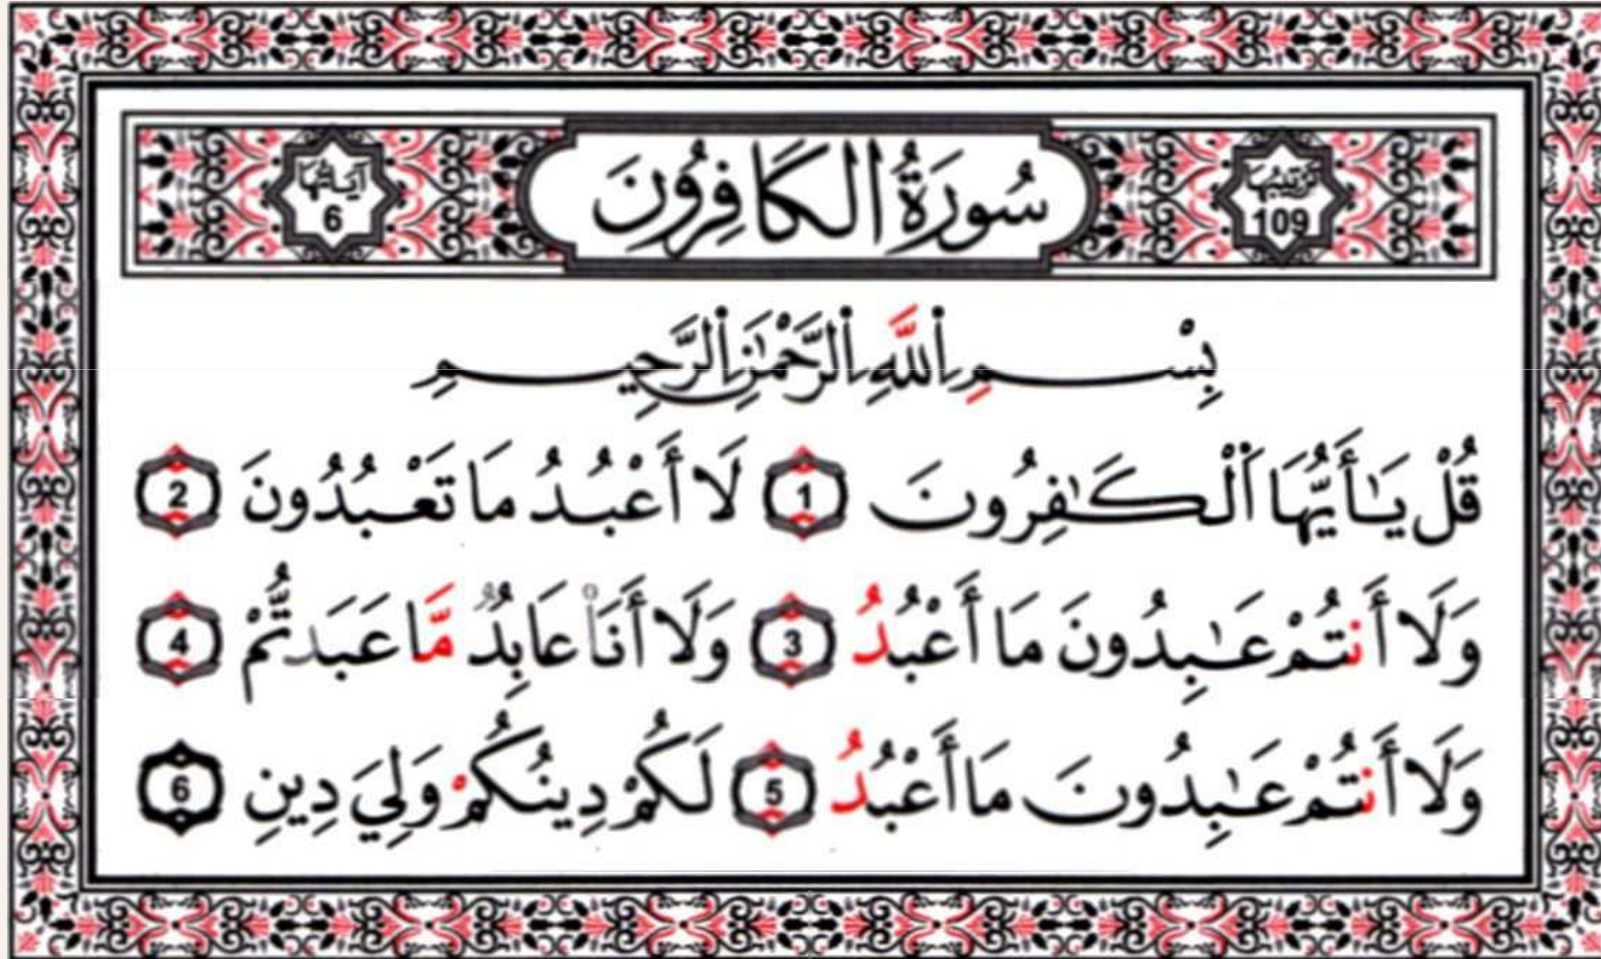 ترتيبها 109 سُورَةُ الكَافِرُونَ آياتها 6
بِسْمِ ٱللَّهِ ٱلرَّحْمَٰنِ ٱلرَّحِيمِ
قُلْ يَٰأَيُّهَا ٱلْكَٰفِرُونَ 1 لَا أَعْبُدُ مَا تَعْبُدُونَ 2
وَلَا أَنتُمْ عَٰبِدُونَ مَا أَعْبُدُ 3 وَلَا أَنَا۠ عَابِدٌ مَّا عَبَدتُّمْ 4
وَلَا أَنتُمْ عَٰبِدُونَ مَا أَعْبُدُ 5 لَكُمْ دِينُكُمْ وَلِيَ دِينِ 6